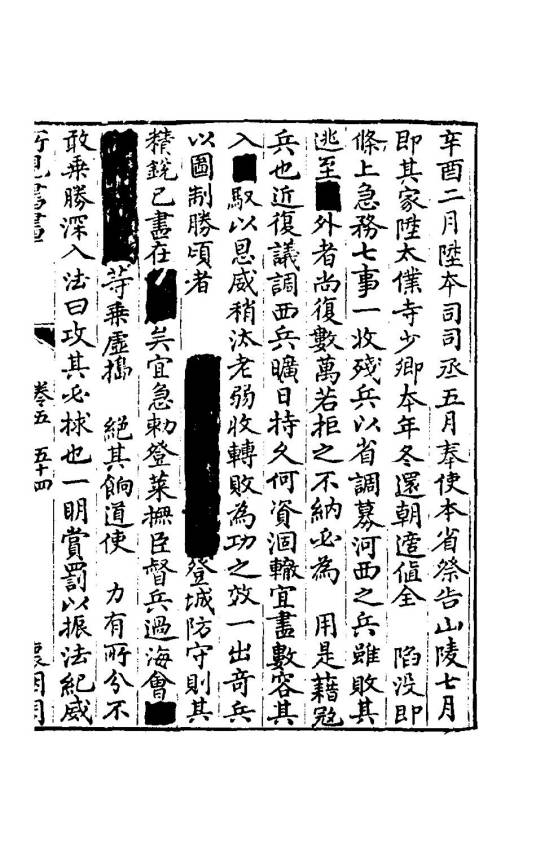 辛酉二月陞本司司丞五月奉使本省祭告山陵七月
即其家陞太僕寺少卿本年冬還朝遼值全 陷没即
條上急務七事一收殘兵以省調募河西之兵雖敗其
逃至 外者尚復數萬若拒之不納必為 用是藉寇
兵也近復議調西兵曠日持久何資涸轍宜盡數容其
入 馭以恩威稍汰老弱收轉敗為功之效一出奇兵
以圖制勝頃者 登城防守則其
精銳已盡在 矣宜急勅登萊撫臣督兵過海會
等乘虛搗 絕其餉道使 力有所分不
敢乘勝深入法曰攻其必捄也一明賞罰以振法紀威
卷五 五十四